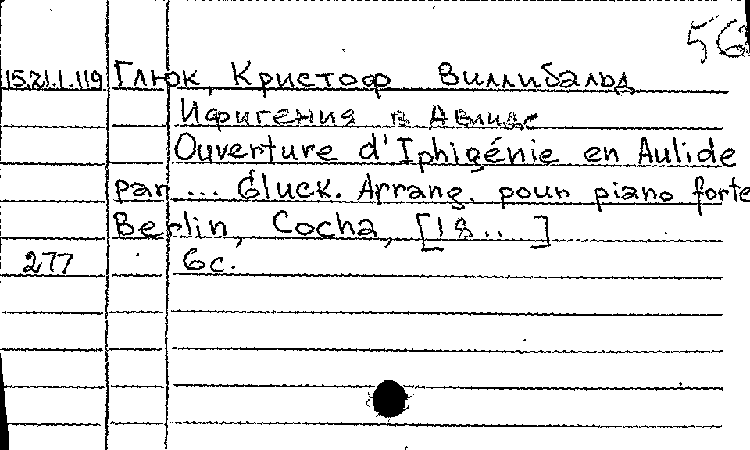 56
15.21.1.119 Глюк, Кристоф Виллибальд
Ифигения в Авлиде
Ouverture d'Iphigénie en Aulide
par ... Gluck. Arrang. pour piano forte
Berlin, Cocha, [18.. ]
277 6с.